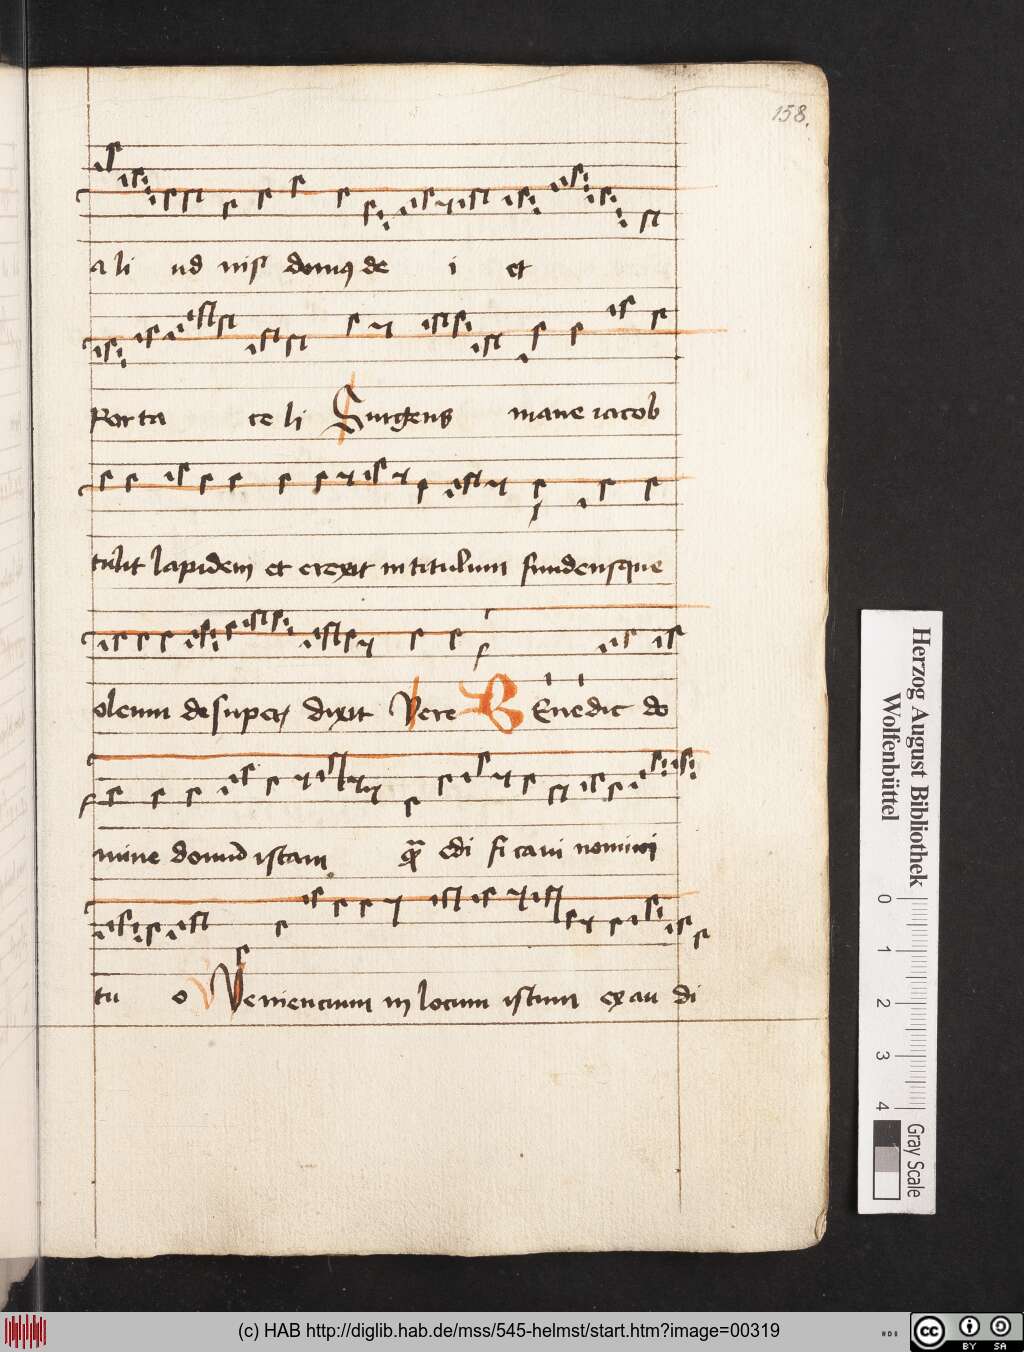 158.
a li ud nisi domus de i et
Porta ce li Surgens mane iacob
tulit lapidem et erexit in titulum fundensque
oleum desuper dixit Vere Benedic do
mine domum istam edi fi caui nomini
tu o Veniencium in locum istum ex au di
Herzog August Bibliothek
Wolfenbüttel
0 1 2 3 4
Gray Scale
(c) HAB http://diglib.hab.de/mss/545-helmst/start.htm?image=00319
cc BY SA